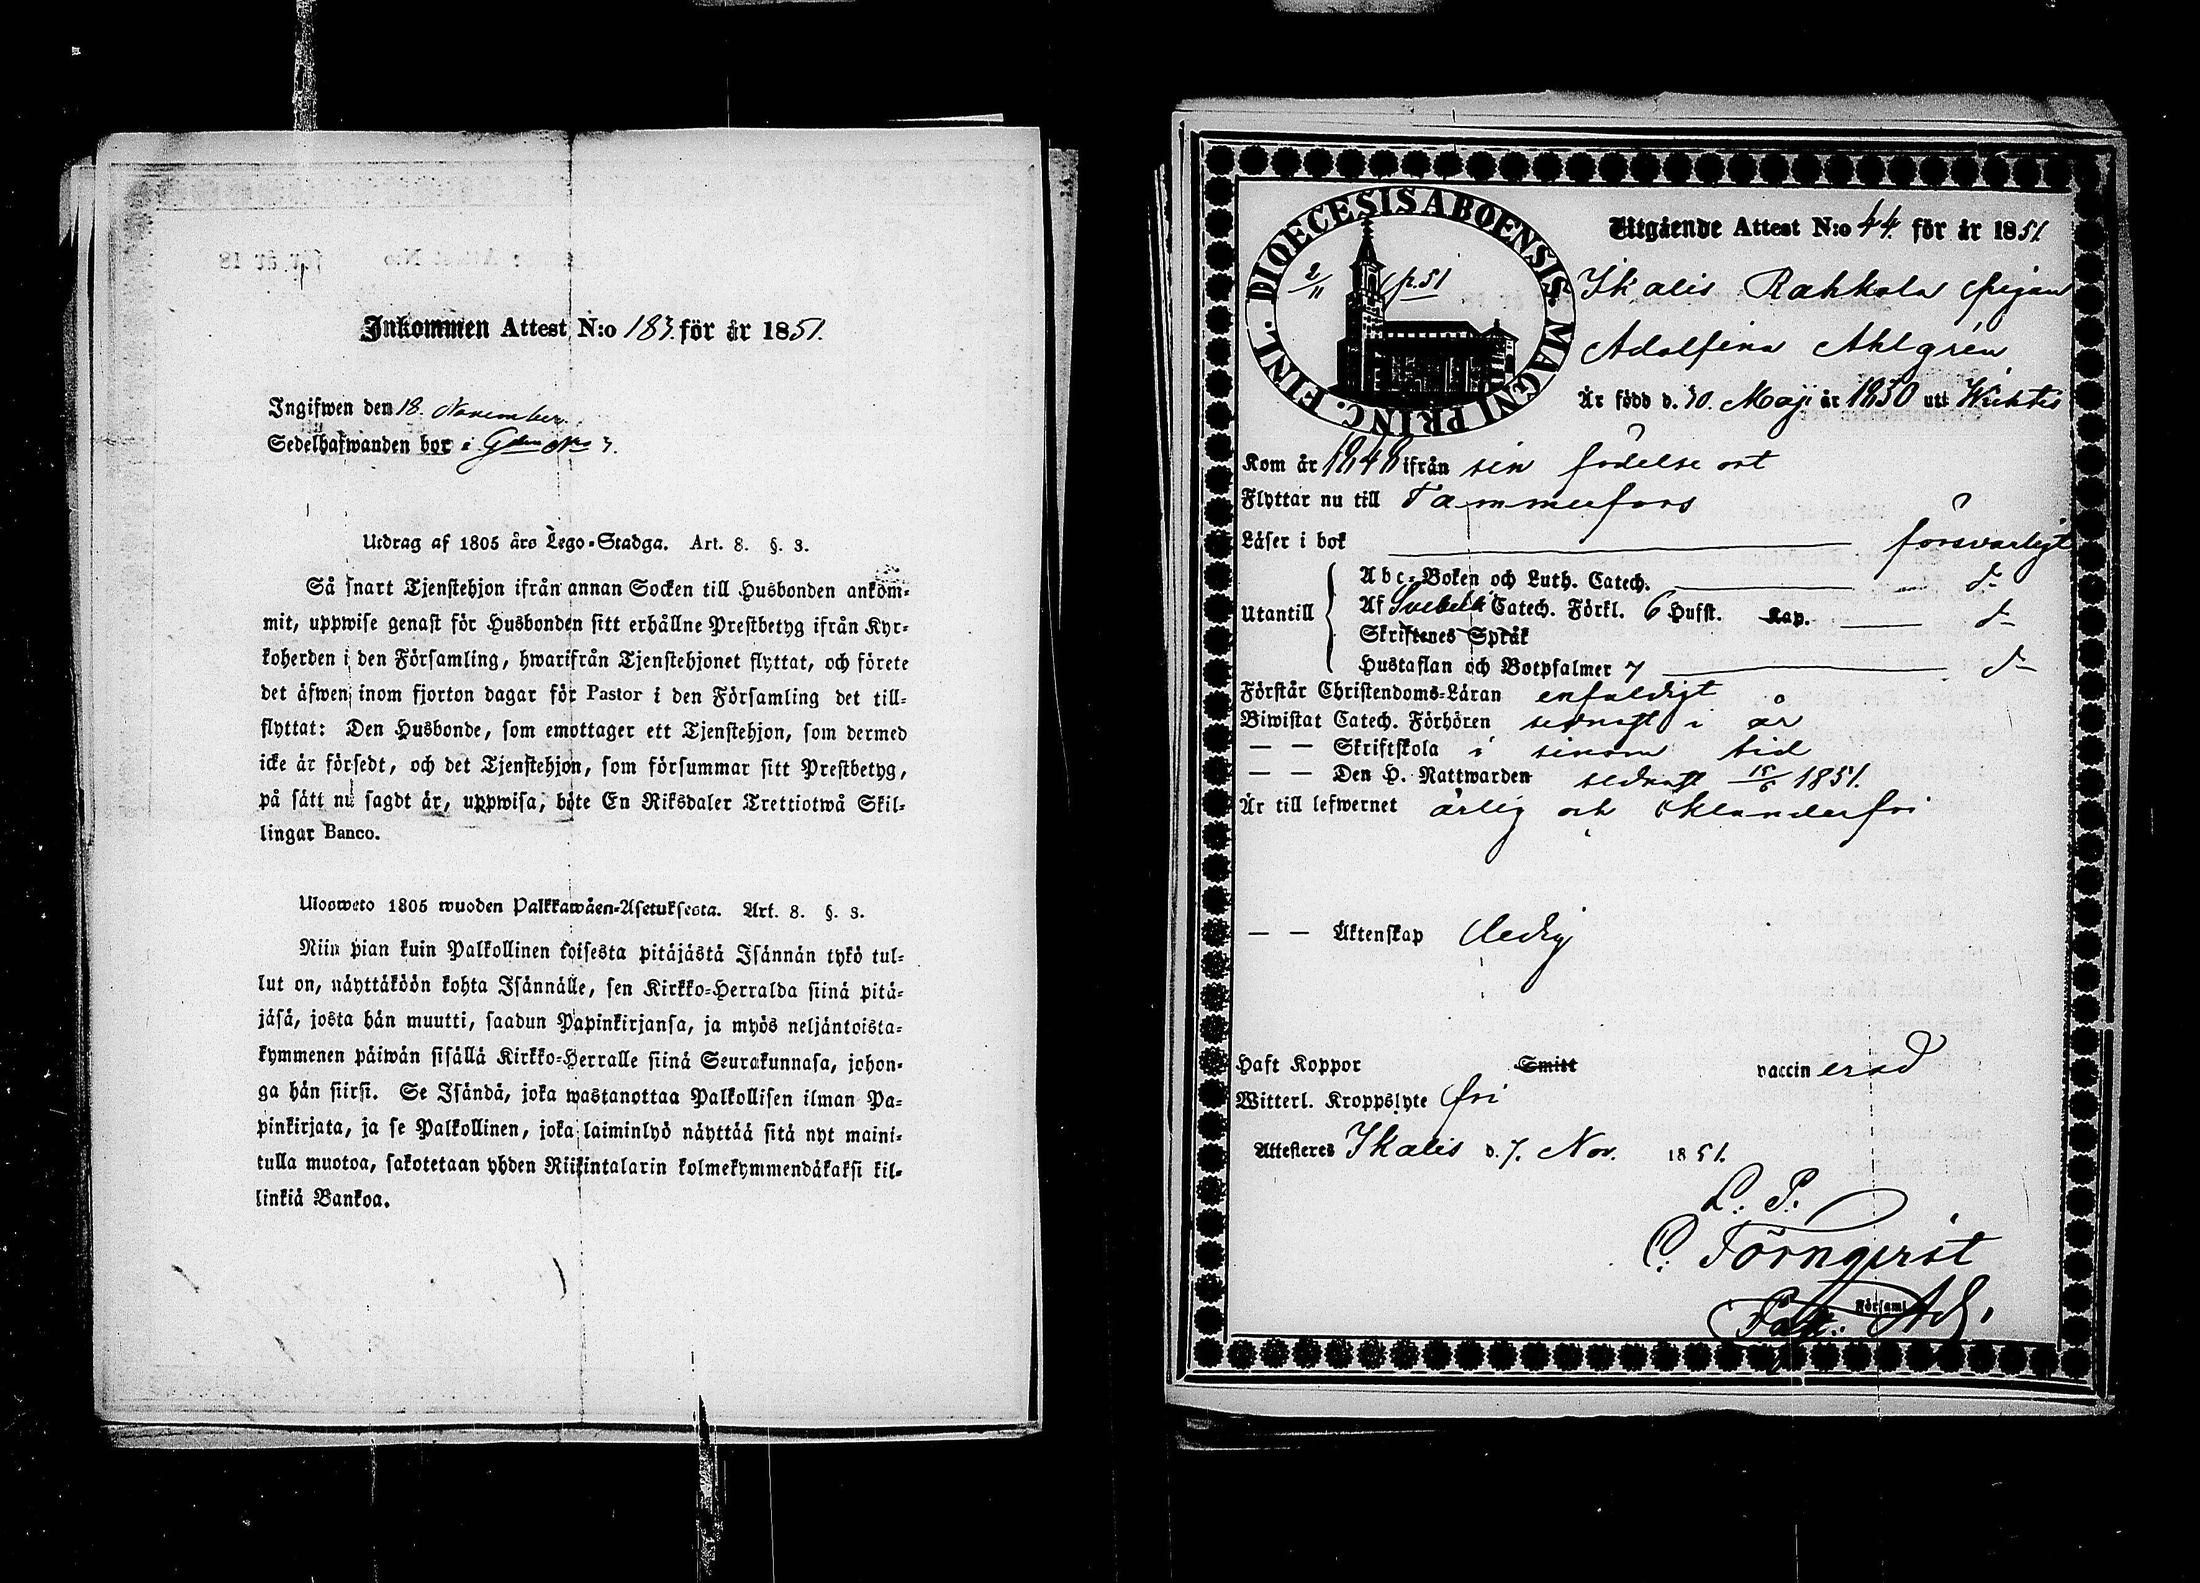 Inkommen Attest N:o 183. för år 1851.
Ingifwen den 18. November.
Sedelhafwanden bor i
Utdrag af 1805 års Lego-Stadga. Art. 8. §. 3.
Så snart Tjenstehjon ifrån annan Socken till Husbonden anköm-
mit, uppwise genast för Husbonden sitt erhållne Prestbetyg ifrån Kyr-
koherden i den Församling, hwarifrån Tjenstehjonet flyttat, och förete
det äfwen inom fjorton dagar för Pastor i den Församling det till-
flyttat: Den Husbonde, som emottager ett Tjenstehjon, som dermed
icke är försedt, och det Tjenstehjon, som försummar sitt Prestbetyg,
på sätt nu sagdt är, uppwisa, böte En Riksdaler Trettiotwå Skil-
lingar Banco.
Ulosweto 1805 wuoden Palkkawäen-Asetuksesta. Art. 8. §. 3.
Niin pian kuin Palkollinen toisesta pitäjästä Isännän tykö tul-
lut on, näyttäköön kohta Isännälle, sen Kirkko-Herralda siinä pitä-
jäsä, josta hän muutti, saadun Papinkirjansa, ja myös neljäntoista-
kymmenen päiwän sisällä Kirkko-Herralle siinä Seurakunnasa, johon-
ga hän siirsi. Se Isändä, joka wastanottaa Palkollisen ilman Pa-
pinkirjata, ja se Palkollinen, joka laiminlyö näyttää sitä nyt maini-
tulla muotoa, sakotetaan yhden Riikintalarin kolmekymmendäkaksi kil-
linkiä Bankoa.
DIOECESIS ABOENSIS MAGNI PRINC. FINL.
2/11 p. 51
Utgående Attest N:o 44. för år 1851.
Ikalis Rahkola Pigan
Adolfina Ahlgrén
Är född d. 10. Maji år 1830 utt Wichtis
Kom år 1848 ifrån sin födelse ort
Flyttar nu till Tammerfors
Läser i bok försvarligt
Utantill
Abc-Boken och Luth. Catech. d-
Af Svebelii Catech. Förkl. 6 Hufst. Kap. d-
Skriftenes Språk
Hustaflan och Botpsalmer 7 d-
Förstår Christendoms-Läran enfaldigt
Biwistat Catech. Förhören sednast i år
— — Skriftskola i sinom tid
— — Den H. Nattwarden sednast 15/6 1851.
Är till lefwernet ärlig och oklanderfri
— — Äktenskap ledig
Haft Koppor Smitt vaccinerad
Witterl. Kroppslyte fri
Attesteres Ikalis d. 7. Nov. 1851.
L. P.
C. Törnqvist
Past. Adj.
Församl